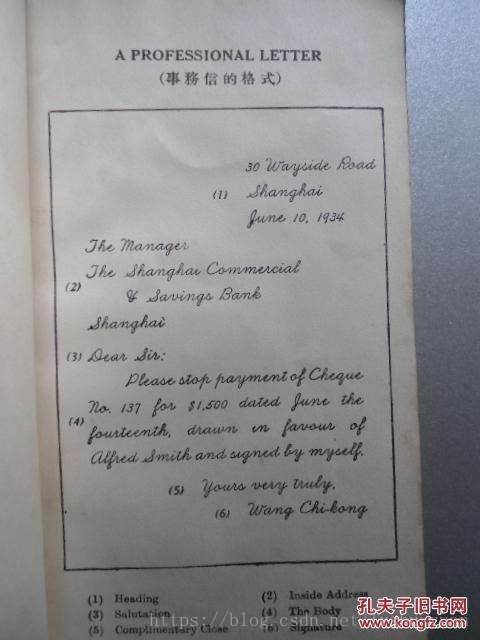 A PROFESSIONAL LETTER
(事務信的格式)
30 Wayside Road
(1) Shanghai
June 10, 1934
The Manager
The Shanghai Commercial
(2)
& Savings Bank
Shanghai
(3) Dear Sir:
Please stop payment of Cheque
No. 137 for $1,500 dated June the
(4)
fourteenth, drawn in favour of
Alfred Smith and signed by myself.
(5) Yours very truly,
(6) Wang Chi-kong
(1) Heading (2) Inside Address
(3) Salutation (4) The Body
(5) Complimentary Close (6) Signature
https://blog.csdn.net
孔夫子旧书网